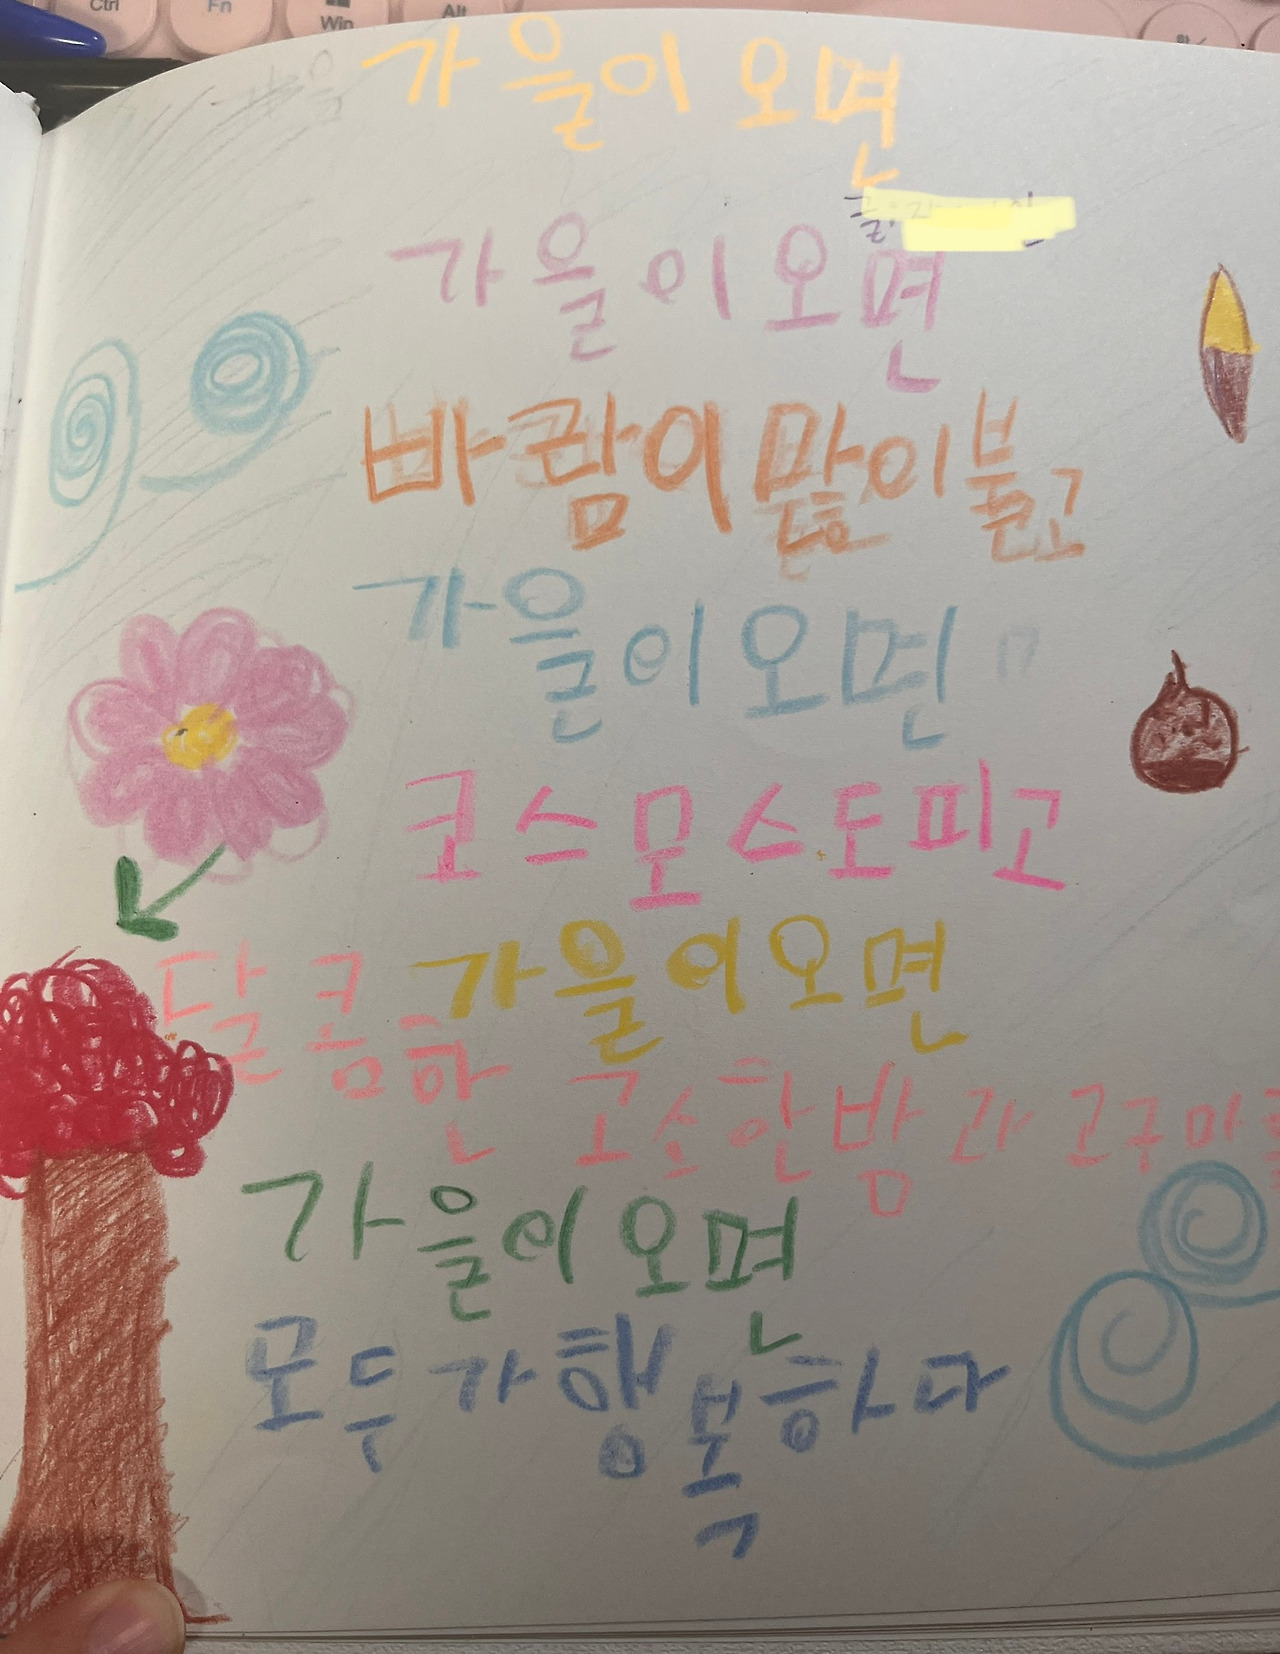 Ctrl
Fn
Win
Alt
가을이 오면
가을이 오면
빠람이 많이 불고
가을이 오면
코스모스도 피고
가을이 오면
달콤한 고소한 밤과 고구마를
가을이 오면
모두가 행복하다